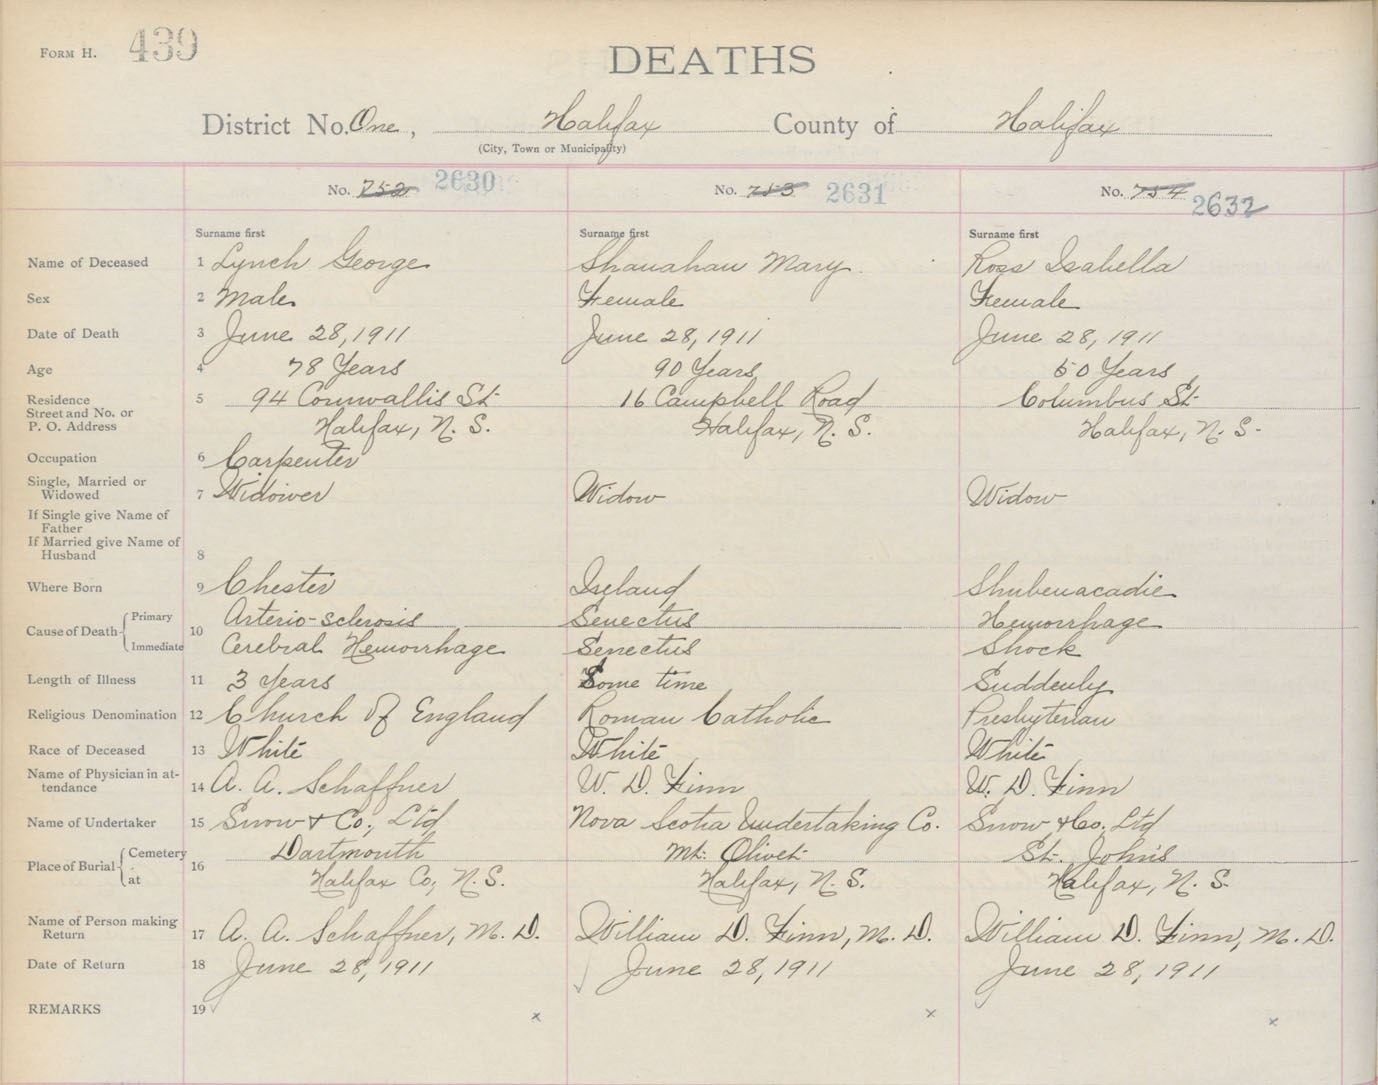 FORM H. 439
DEATHS
District No. One, Halifax County of Halifax
(City, Town or Municipality)
No. 752 2630 No. 753 2631 No. 754 2632
Surname first Surname first Surname first
Name of Deceased 1 Lynch George Shanahan Mary Ross Isabella
Sex 2 Male Female Female
Date of Death 3 June 28, 1911 June 28, 1911 June 28, 1911
Age 4 78 Years 90 Years 50 Years
Residence 5 94 Cornwallis St. 16 Campbell Road Columbus St.
Street and No. or
P. O. Address Halifax, N. S. Halifax, N. S. Halifax, N. S.
Occupation 6 Carpenter
Single, Married or
Widowed 7 Widower Widow Widow
If Single give Name of
Father
If Married give Name of
Husband 8
Where Born 9 Chester Ireland Shubenacadie
Cause of Death Primary 10 Arterio-sclerosis Senectus Hemorrhage
Immediate Cerebral Hemorrhage Senectus Shock
Length of Illness 11 3 Years Some time Suddenly
Religious Denomination 12 Church Of England Roman Catholic Presbyterian
Race of Deceased 13 White White White
Name of Physician in at-
tendance 14 A. A. Schaffner W. D. Finn W. D. Finn
Name of Undertaker 15 Snow & Co., Ltd Nova Scotia Undertaking Co. Snow & Co. Ltd
Place of Burial Cemetery 16 Dartmouth Mt. Olivet St. John's
at Halifax Co, N. S. Halifax, N. S. Halifax, N. S.
Name of Person making
Return 17 A. A. Schaffner, M. D. William D. Finn, M. D. William D. Finn, M. D.
Date of Return 18 June 28, 1911 June 28, 1911 June 28, 1911
REMARKS 19 x x x